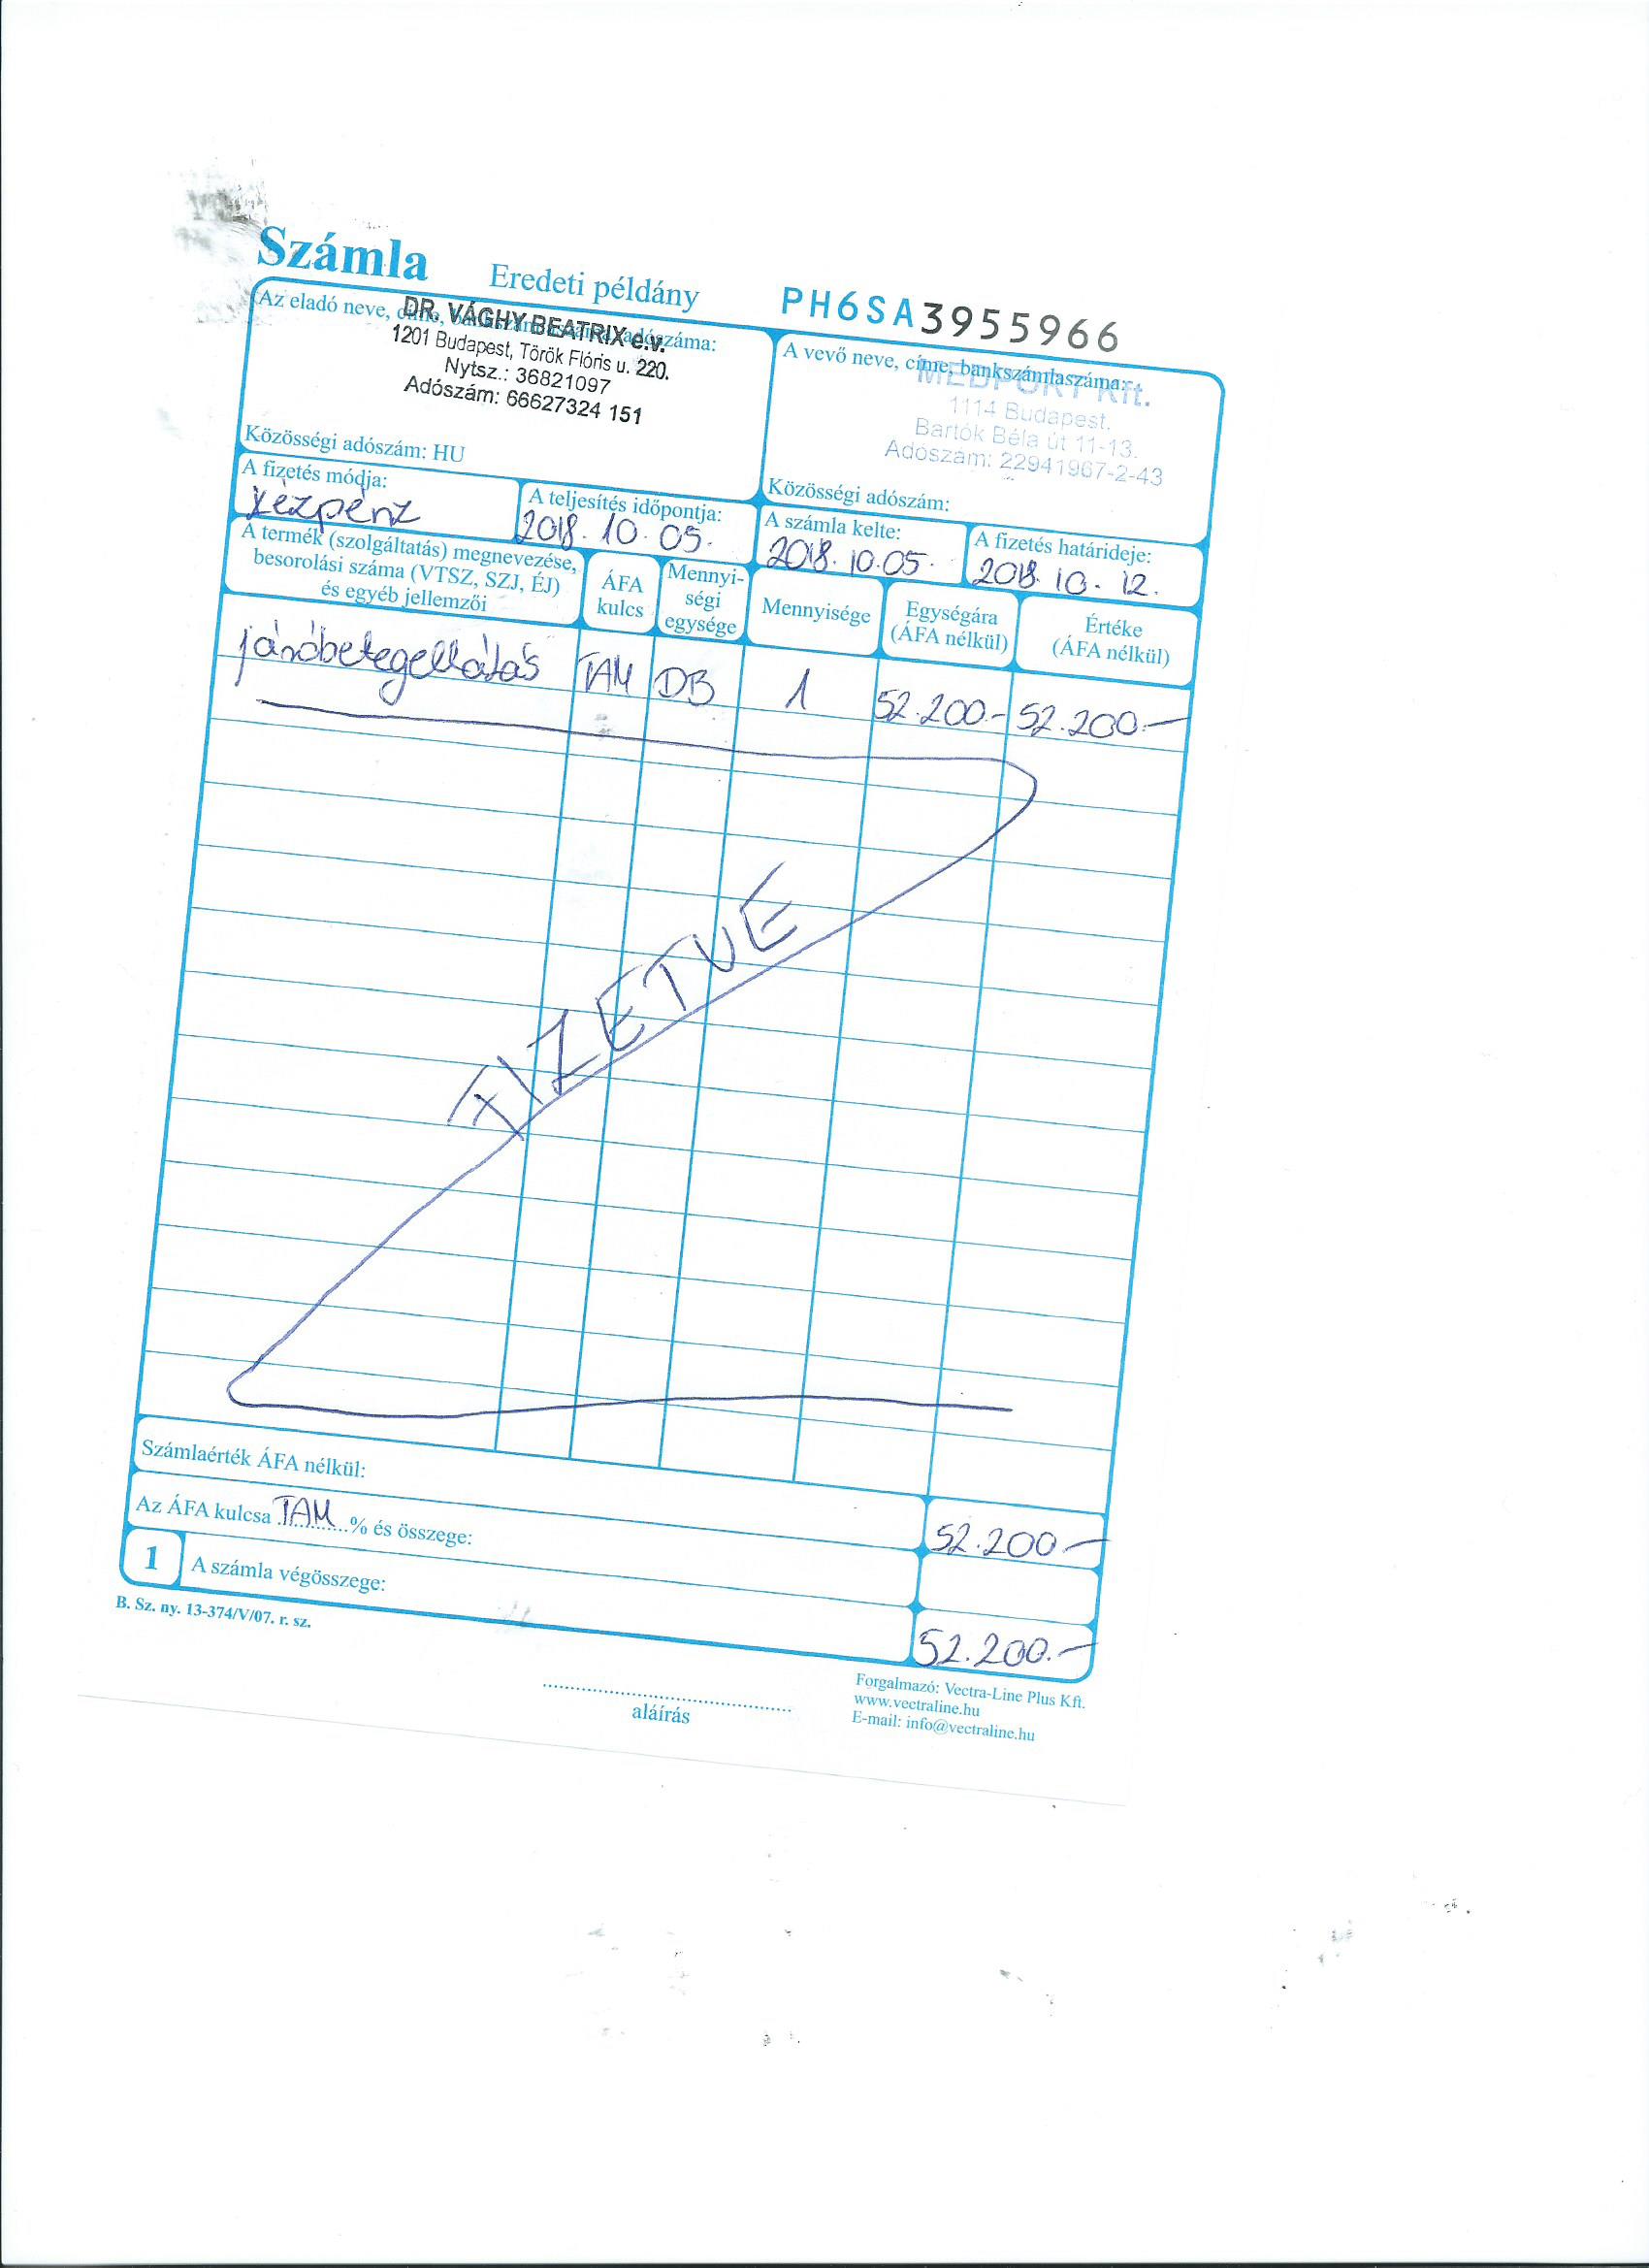 Számla Eredeti példány PH6SA3955966
Az eladó neve, címe, bankszámlaszáma, adószáma:
DR. VÁGHY BEATRIX e.v.
1201 Budapest, Török Flóris u. 220.
Nytsz.: 36821097
Adószám: 66627324 151
Közösségi adószám: HU
A vevő neve, címe, bankszámlaszáma:
MEDPORT Kft.
1114 Budapest.
Bartók Béla út 11-13.
Adószám: 22941967-2-43
Közösségi adószám:
A fizetés módja:
Készpénz
A teljesítés időpontja:
2018. 10. 05.
A számla kelte:
2018. 10. 05.
A fizetés határideje:
2018. 10. 12.
A termék (szolgáltatás) megnevezése,
besorolási száma (VTSZ, SZJ, ÉJ)
és egyéb jellemzői
ÁFA
kulcs
Mennyi-
ségi
egysége
Mennyisége
Egységára
(ÁFA nélkül)
Értéke
(ÁFA nélkül)
járóbetegellátás TAM DB 1 52.200.- 52.200.-
FIZETVE
Számlaérték ÁFA nélkül: 52.200.-
Az ÁFA kulcsa TAM % és összege:
1 A számla végösszege: 52.200.-
B. Sz. ny. 13-374/V/07. r. sz.
aláírás
Forgalmazó: Vectra-Line Plus Kft.
www.vectraline.hu
E-mail: info@vectraline.hu